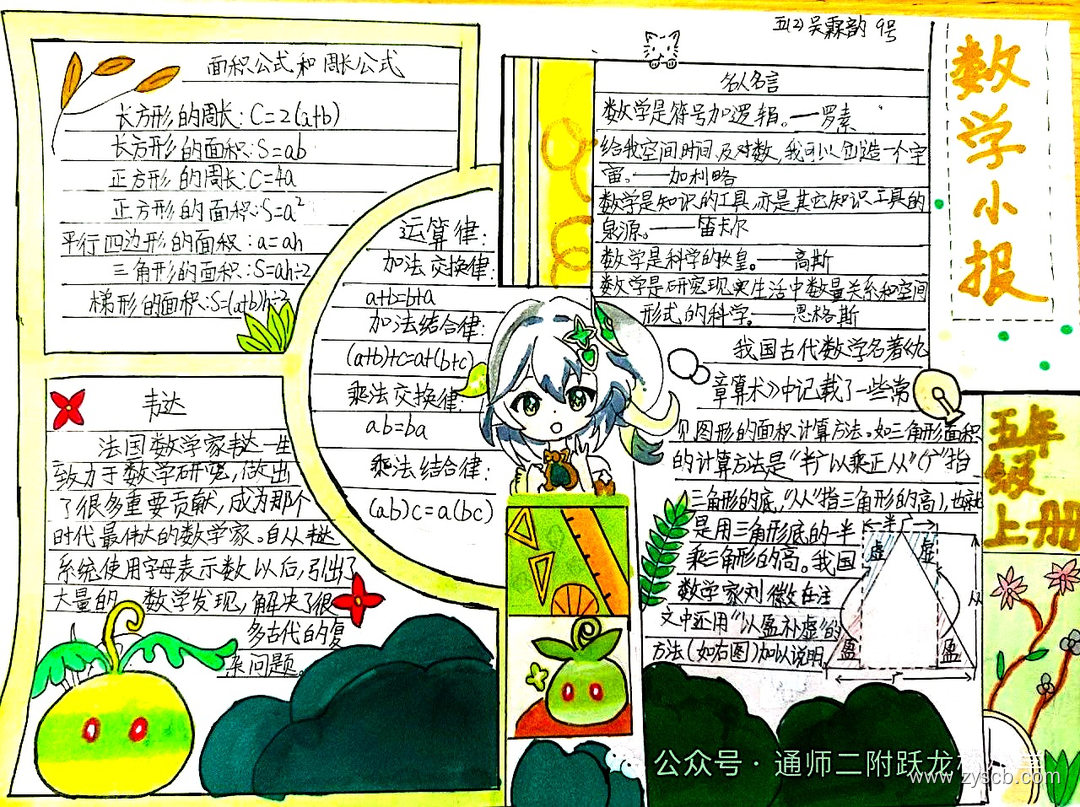 五(2)吴霖韵 9号
数学小报
五年级上册
面积公式和周长公式
长方形的周长:C=2(a+b)
长方形的面积:S=ab
正方形的周长:C=4a
正方形的面积:S=a²
平行四边形的面积:a=ah
三角形的面积:S=ah÷2
梯形的面积:S=(a+b)h÷2
运算律:
加法交换律:
a+b=b+a
加法结合律:
(a+b)+c=a+(b+c)
乘法交换律:
ab=ba
乘法结合律:
(ab)c=a(bc)
名人名言
数学是符号加逻辑。——罗素
给我空间时间及对数,我可以创造一个宇
宙。——加利略
数学是知识的工具,亦是其它知识工具的
泉源。——笛卡尔
数学是科学的女皇。——高斯
数学是研究现实生活中数量关系和空间
形式的科学。——恩格斯
我国古代数学名著《九
章算术》中记载了一些常
见图形的面积计算方法。如三角形面积
的计算方法是“半广以乘正从”(“广”指
三角形的底,“从”指三角形的高),也就
是用三角形底的一半
乘三角形的高。我国
数学家刘徽在注
文中还用“以盈补虚”的
方法(如右图)加以说明
半广
虚 虚
从
盈 盈
广
韦达
法国数学家韦达一生
致力于数学研究,做出
了很多重要贡献,成为那个
时代最伟大的数学家。自从韦达
系统使用字母表示数以后,引出了
大量的 数学发现,解决了很
多古代的复
杂问题。
公众号·通师二附跃龙
www.zyscb.com